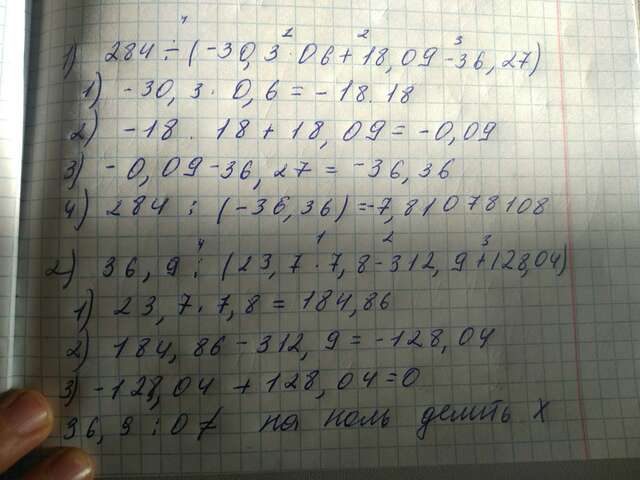 4 2 2 3
1) 284 ÷ (-30,3·06+18,09-36,27)
1) -30,3·0,6=-18.18
2) -18.18+18,09=-0,09
3) -0,09-36,27=-36,36
4) 284:(-36,36)=-7,81078108
4 1 2 3
2) 36,9:(23,7·7,8-312,9+128,04)
1) 23,7·7,8=184,86
2) 184,86-312,9=-128,04
3) -128,04+128,04=0
36,9:0≠ на ноль делить X